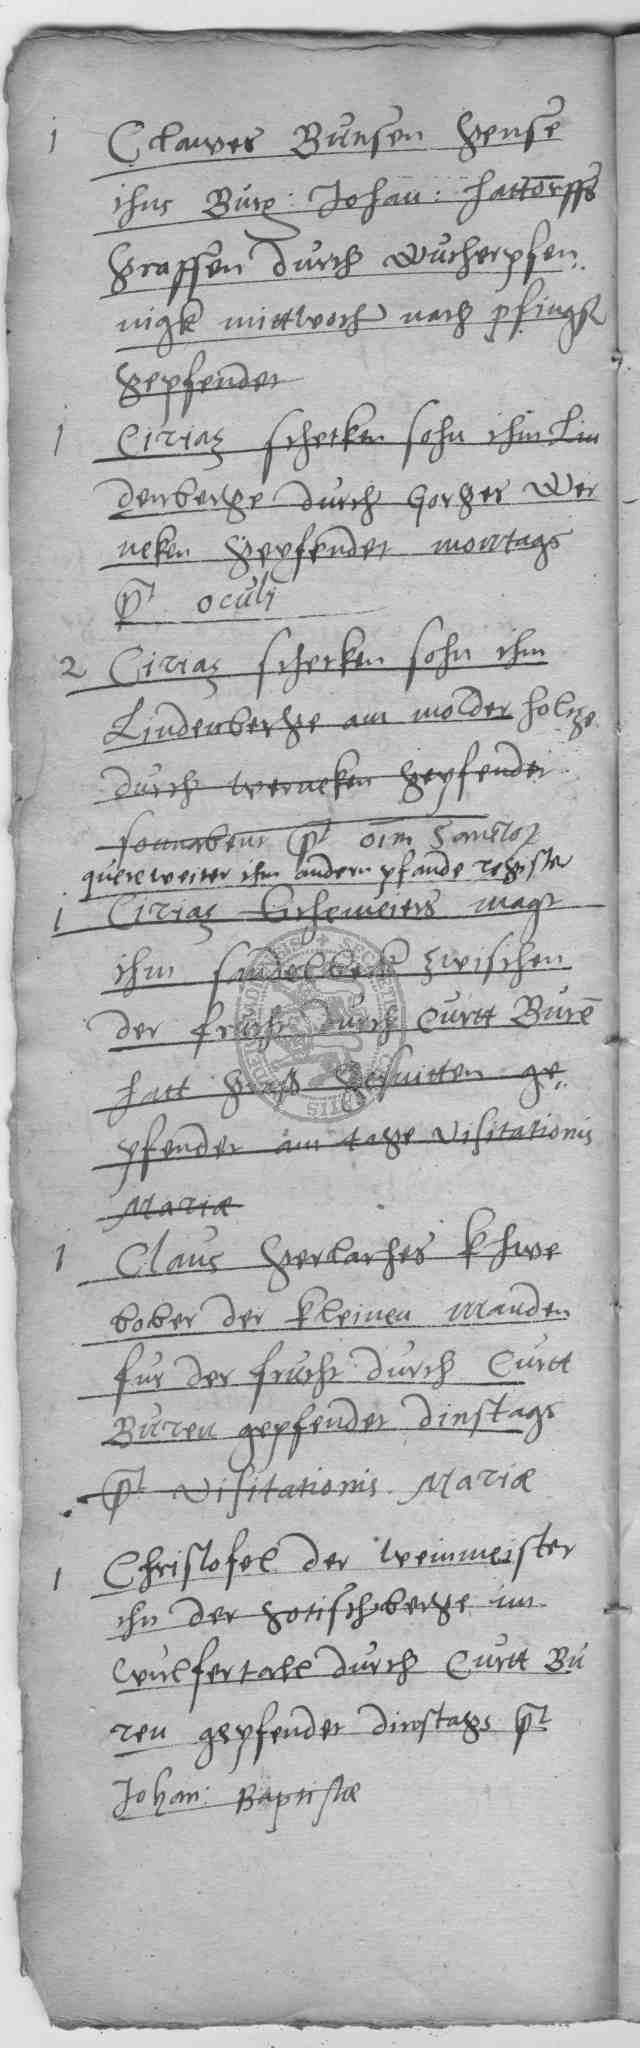 1 Clawes Bunsen gense
ihns Burg: Johan: hattorffs
grassen durch Wucherpfen„
nigk mittwoch nach pfingst
gepfendet
1 Cirias scherken sohn ihm Lin
denberge durch Gorges Wer
neken gepfendet montags
pt oculi
2 Cirias scherken sohn ihm
Lindenberge am molder holtze
durch Werneken gepfendet
sonnabent pt oim Sanctor
quere weiter ihm andern pfande register
1 Cirias magt
ihm zwischen
der frucht durch Curtt Buren
hatt graß geschnitten ge„
pfendet am tage Visitationis
Mariæ
1 Claus gerlaches khwe
bober der kleinen Manden
fur der frucht durch Curtt
Buren gepfendet dinstags
pt Visitationis Mariæ
1 Christofel der weinmeister
ihn der gotischberge im
wulfertall durch Curtt Bu
ren gepfendet dinstags pt
Johan: Baptistæ